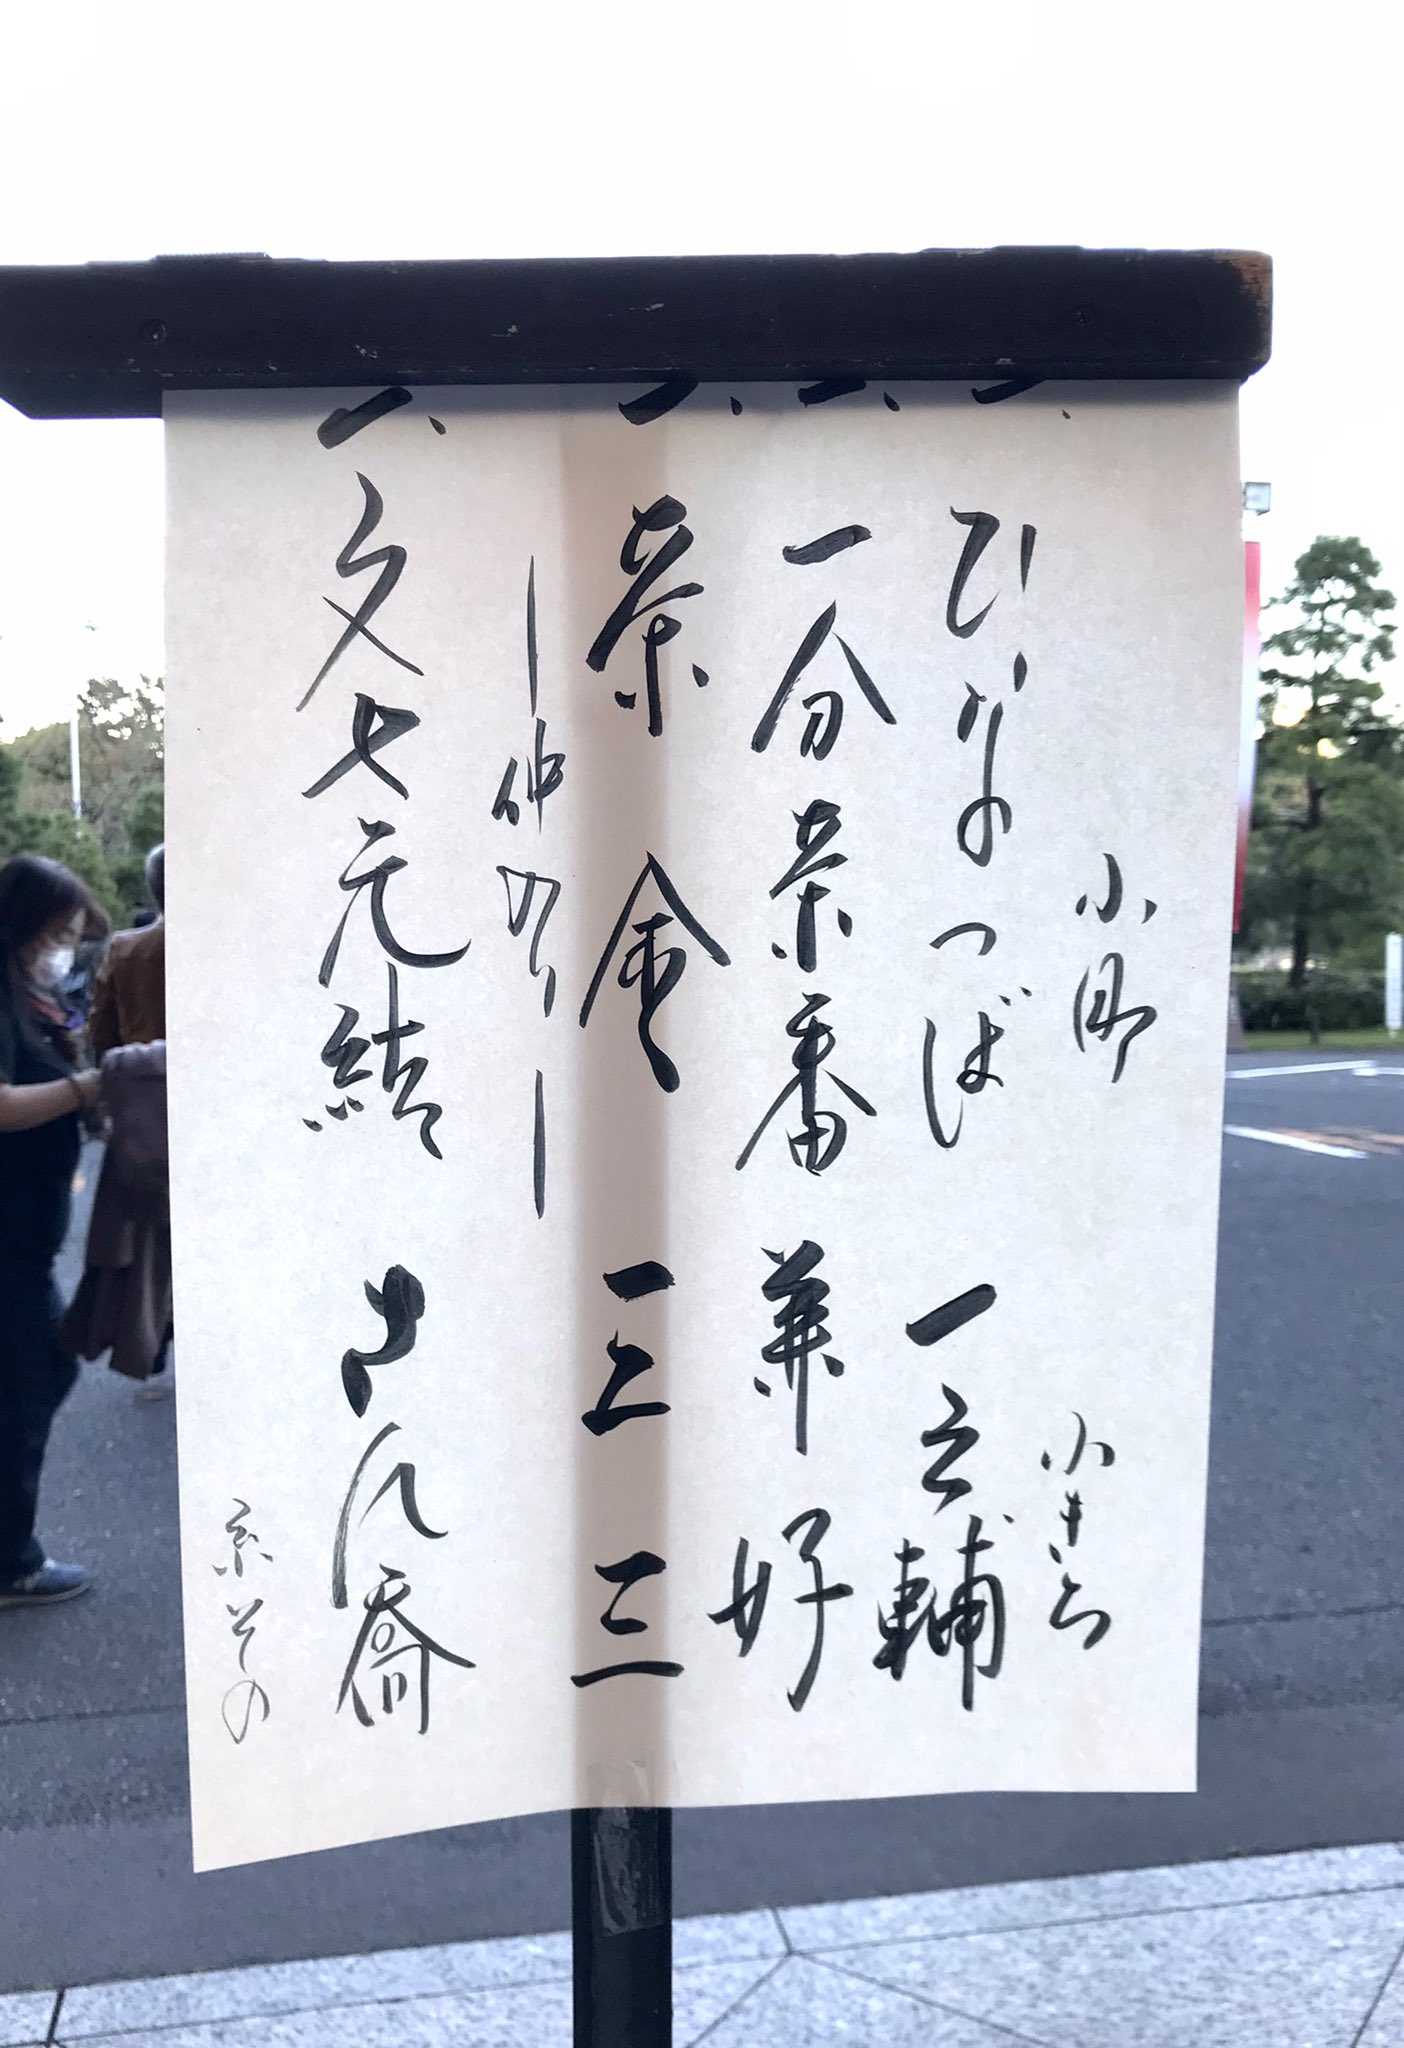 小町　小きち
一、ひなつば　一之輔
一、一分茶番　兼好
一、茶金　三三
―仲入り―
一、文七元結　さん喬
糸その